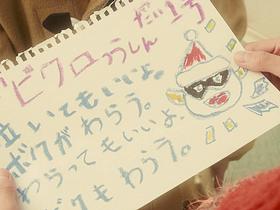 ピクロつうしん だい1号
泣いてもいいよ。
ボクがわらう。
わらってもいいよ。
ボクもわらう。